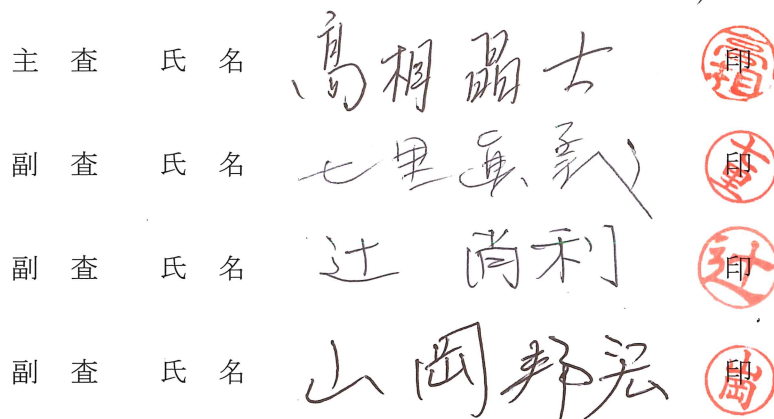 主査 氏名 高相晶士 印
副査 氏名 七里眞義 印
副査 氏名 辻 尚利 印
副査 氏名 山岡邦宏 印